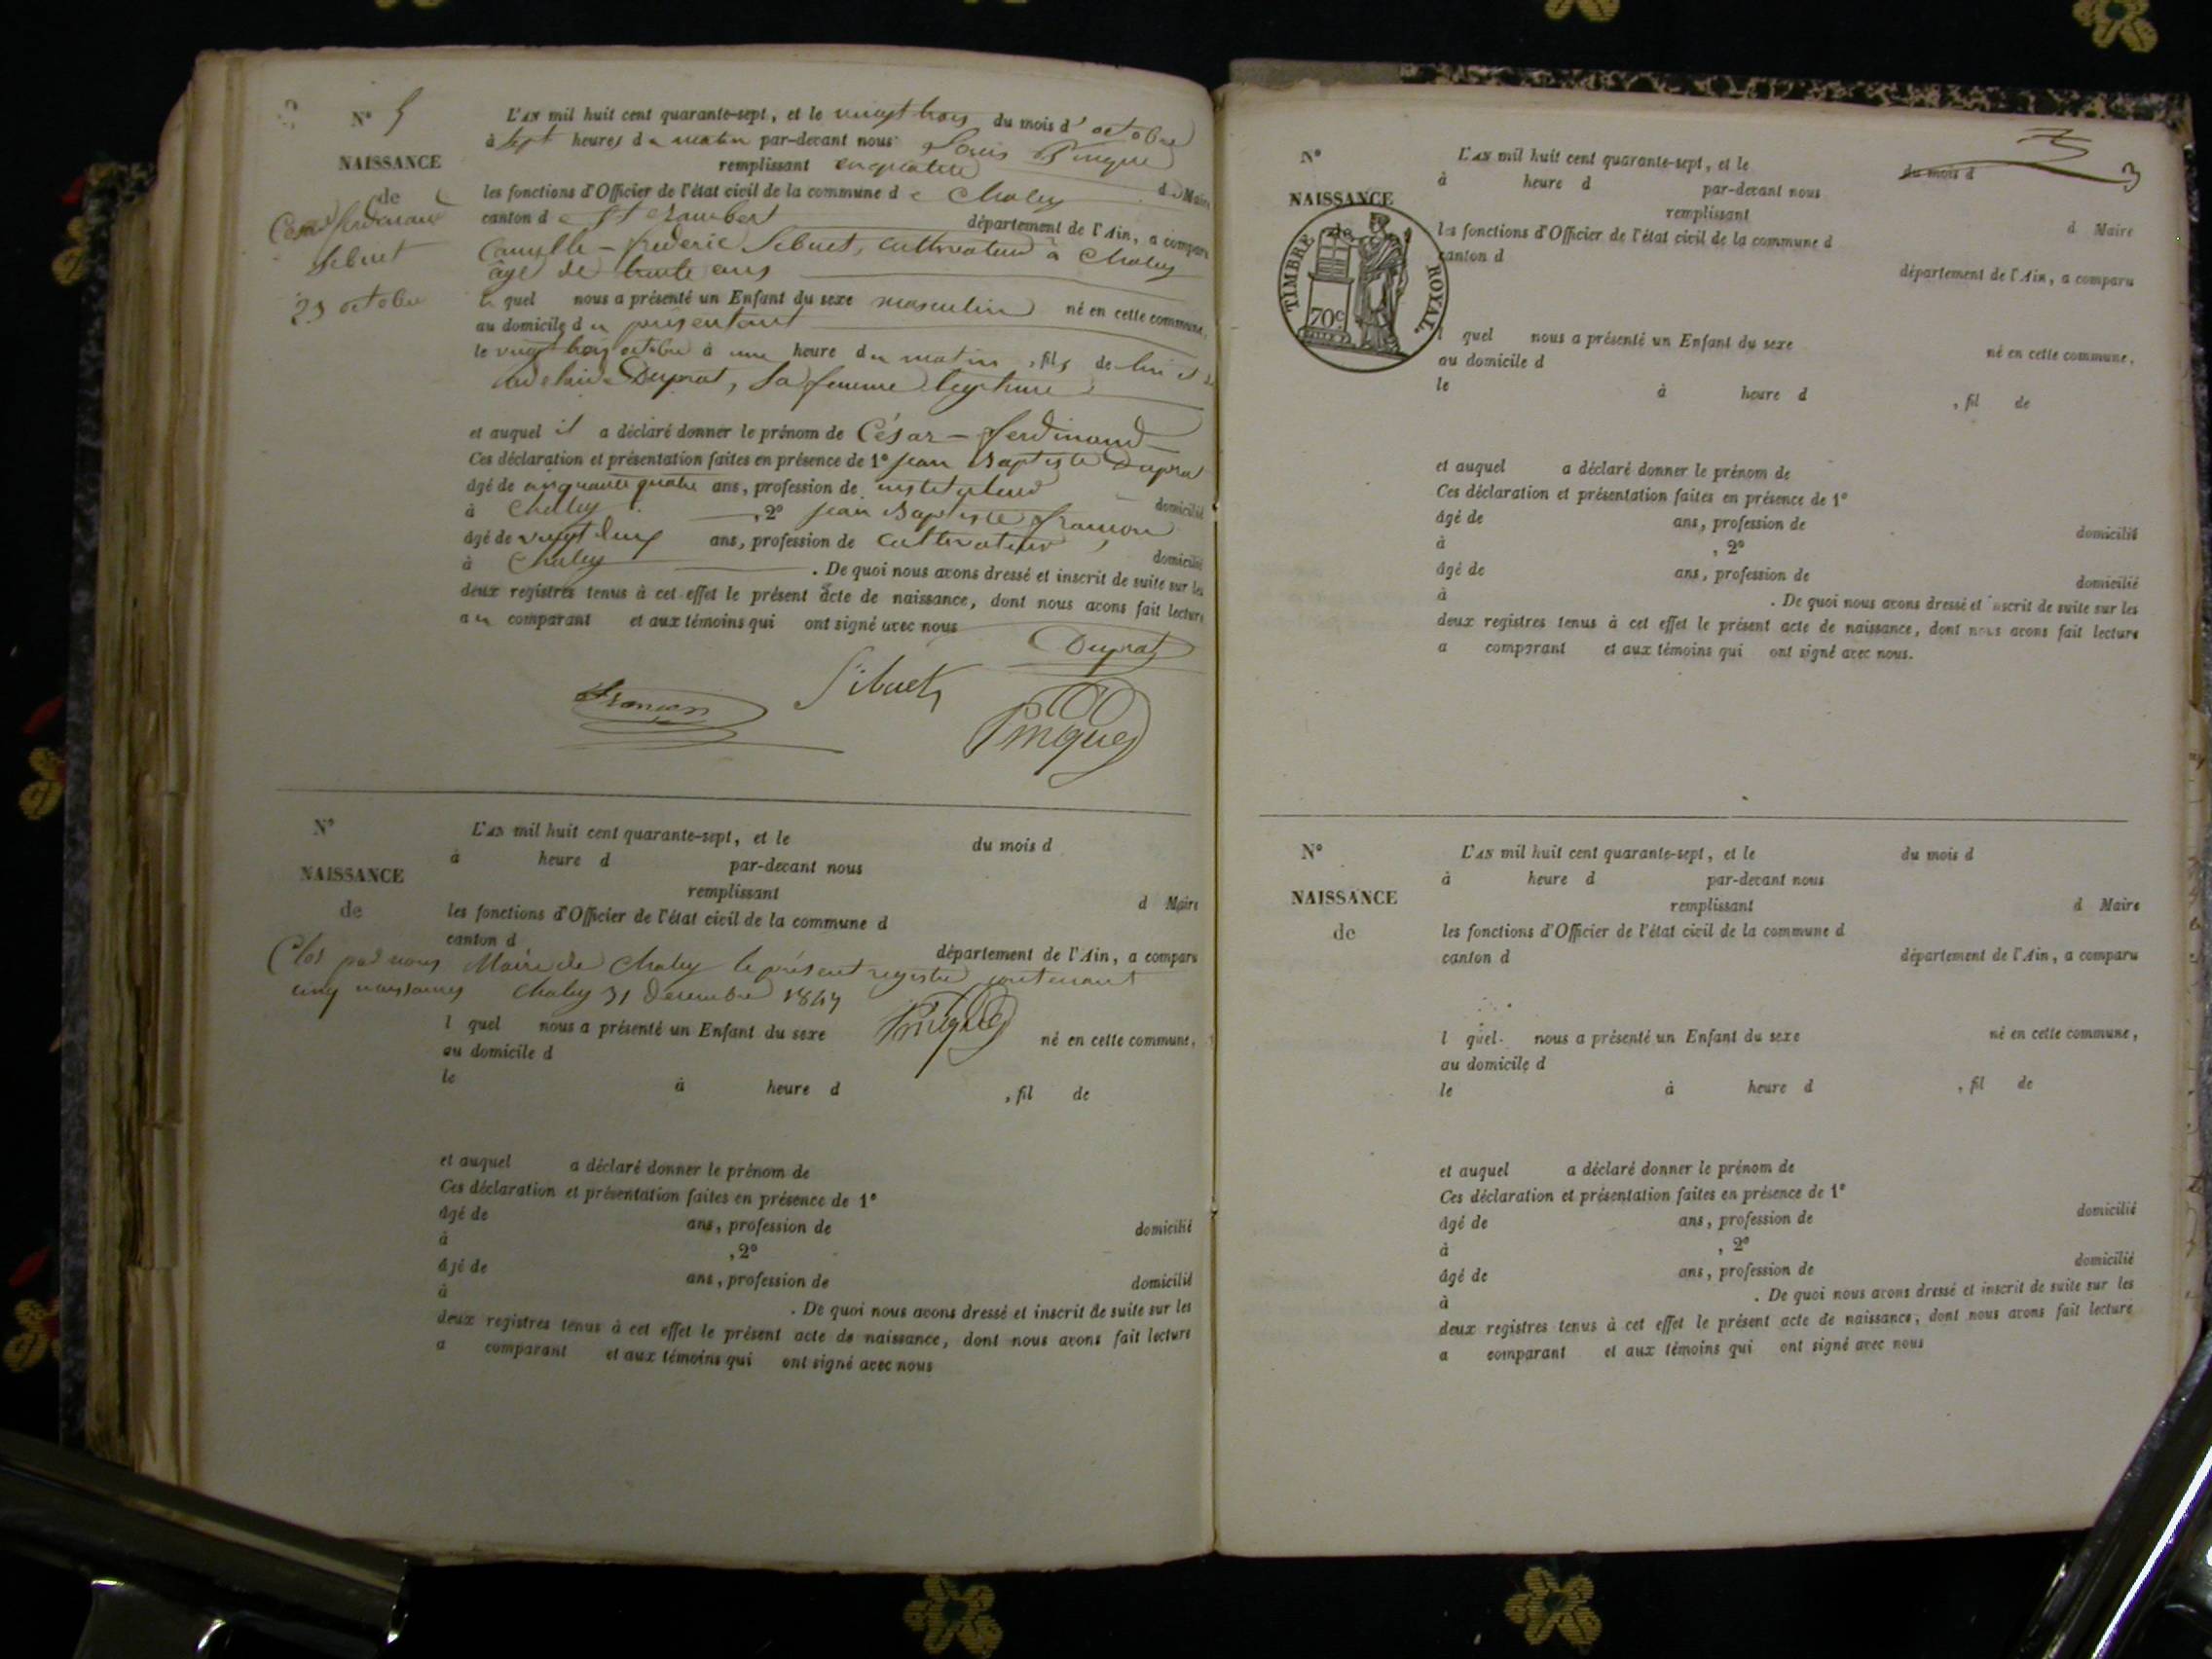 N° 5
NAISSANCE
de
César ferdinand
Sibuet
23 octobre
L'AN mil huit cent quarante-sept, et le vingt trois du mois d'octobre
à sept heures du matin par-devant nous Louis Pingue
remplissant en qualité
les fonctions d'Officier de l'état civil de la commune de Chaley d Maire
canton de St Rambert département de l'Ain, a comparu
Camille-frédéric Sibuet, cultivateur à Chaley
âgé de trente ans
le quel nous a présenté un Enfant du sexe masculin né en cette commune,
au domicile du présentant
le vingt trois octobre à une heure du matin, fils de lui et de
Duprat, sa femme légitime
et auquel il a déclaré donner le prénom de César-ferdinand
Ces déclaration et présentation faites en présence de 1° jean Baptiste Duprat
âgé de cinquante quatre ans, profession de instituteur domicilié
à Chaley, 2° jean Baptiste françon
âgé de vingt deux ans, profession de cultivateur, domicilié
à Chaley. De quoi nous avons dressé et inscrit de suite sur les
deux registres tenus à cet effet le présent acte de naissance, dont nous avons fait lecture
au comparant et aux témoins qui ont signé avec nous
Duprat
Sibuet
françon
Pingue
N°
NAISSANCE
de
L'AN mil huit cent quarante-sept, et le du mois d
à heure d par-devant nous
remplissant
les fonctions d'Officier de l'état civil de la commune d d Maire
canton d département de l'Ain, a comparu
Clos par nous Maire de Chaley le présent registre contenant
cinq naissances Chaley 31 décembre 1847
Pingue
l quel nous a présenté un Enfant du sexe né en cette commune,
au domicile d
le à heure d , fil de
et auquel a déclaré donner le prénom de
Ces déclaration et présentation faites en présence de 1°
âgé de ans, profession de domicilié
à , 2°
âgé de ans, profession de domicilié
à . De quoi nous avons dressé et inscrit de suite sur les
deux registres tenus à cet effet le présent acte de naissance, dont nous avons fait lecture
a comparant et aux témoins qui ont signé avec nous
3
N°
NAISSANCE
de
TIMBRE ROYAL.
70c
L'AN mil huit cent quarante-sept, et le du mois d
à heure d par-devant nous
remplissant
les fonctions d'Officier de l'état civil de la commune d d Maire
canton d département de l'Ain, a comparu
l quel nous a présenté un Enfant du sexe né en cette commune,
au domicile d
le à heure d , fil de
et auquel a déclaré donner le prénom de
Ces déclaration et présentation faites en présence de 1°
âgé de ans, profession de domicilié
à , 2°
âgé de ans, profession de domicilié
à . De quoi nous avons dressé et inscrit de suite sur les
deux registres tenus à cet effet le présent acte de naissance, dont nous avons fait lecture
a comparant et aux témoins qui ont signé avec nous.
N°
NAISSANCE
de
L'AN mil huit cent quarante-sept, et le du mois d
à heure d par-devant nous
remplissant
les fonctions d'Officier de l'état civil de la commune d d Maire
canton d département de l'Ain, a comparu
l quel nous a présenté un Enfant du sexe né en cette commune,
au domicile d
le à heure d , fil de
et auquel a déclaré donner le prénom de
Ces déclaration et présentation faites en présence de 1°
âgé de ans, profession de domicilié
à , 2°
âgé de ans, profession de domicilié
à . De quoi nous avons dressé et inscrit de suite sur les
deux registres tenus à cet effet le présent acte de naissance, dont nous avons fait lecture
a comparant et aux témoins qui ont signé avec nous